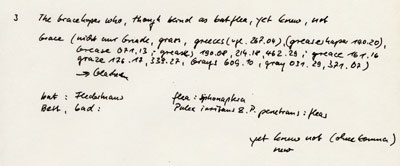 3 The Gracehoper who, though blind as batflea, yet knew, not
Grace (nicht nur Gnade, grass, greeces (vgl. 267.04), (greaseshaper 190.20),
Grease 071.13; greases 190.08, 214.18, 462.29; greace 161.16
graze 136.18, 333.27, Grays 609.10; gray 031.29, 321.07)
→
bat: Fledermaus flea: Siphonaptera
Best, bad: Pulex irritans Z.B. penetrans: fleas
yet knew not (ohne Comma)
new